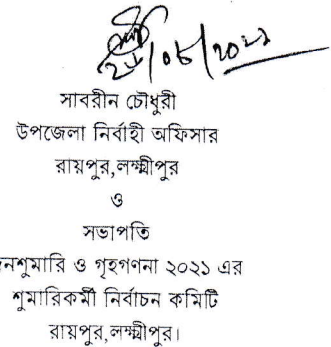 সাবরীন চৌধুরী
উপজেলা নির্বাহী অফিসার
রায়পুর,লক্ষ্মীপুর
ও
সভাপতি
নশুমারি ও গৃহগণনা ২০২১ এর
শুমারিকর্মী নির্বাচন কমিটি
রায়পুর,লক্ষ্মীপুর।